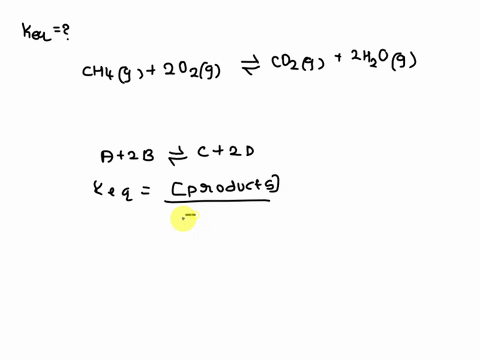 Keq = ?
CH4(g) + 2O2(g) ⇌ CO2(g) + 2H2O(g)
A + 2B ⇌ C + 2D
Keq = [products]